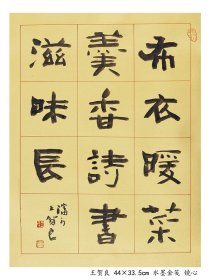 布衣暖菜
羹香詩書
滋味長
王贺良 44×33.5cm 水墨金笺 镜心